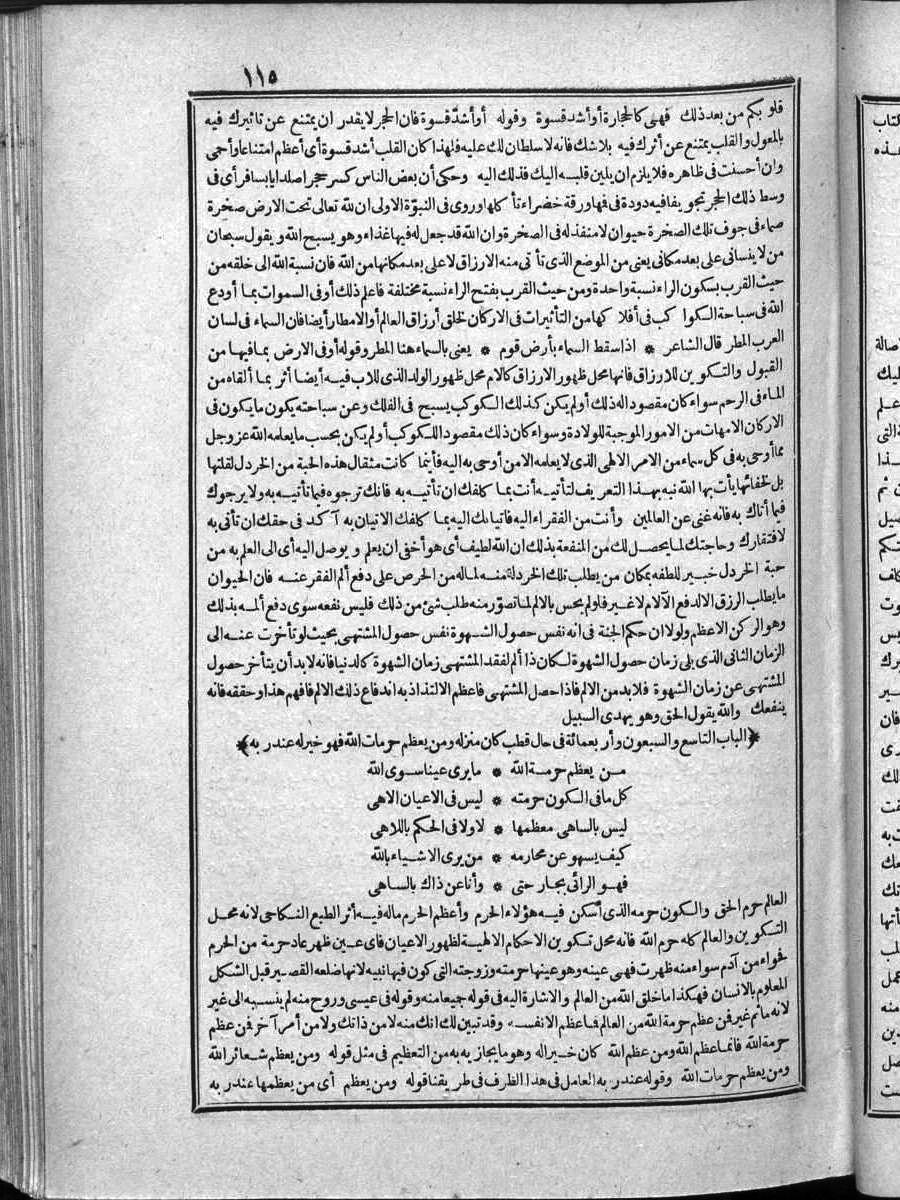 ١١٥
قلوبكم من بعد ذلك فهى كالحجارة أو أشد قسوة وقوله أو أشد قسوة فان الحجر لا يقدر ان يمتنع عن تاثيرك فيه
بالمعول والقلب يمتنع عن أثرك فيه بلا شك فانه لا سلطان لك عليه فلهذا كان القلب أشد قسوة أى أعظم امتناعا وأحمى
وان أحسنت فى ظاهره فلا يلزم ان يلين قلبه اليك فذلك اليه وحكى أن بعض الناس كسر حجرا صلدا يابسا فرأى فى
وسط ذلك الحجر تجويفا فيه دودة فى فها ورقة خضراء تأكلها وروى فى النبوّة الاولى ان لله تعالى تحت الارض صخرة
صماء فى جوف تلك الصخرة حيوان لا منفذ له فى الصخرة وان الله قد جعل له فيها غذاء وهو يسبح الله ويقول سبحان
من لا ينسانى على بعد مكانى يعنى من الموضع الذى تأتى منه الارزاق لا على بعد مكانها من الله فان نسبة الله الى خلقه من
حيث القرب بسكون الراء نسبة واحدة ومن حيث القرب بفتح الراء نسبة مختلفة فاعلم ذلك أو فى السموات بما أودع
الله فى سباحة الكواكب فى أفلاكها من التأثيرات فى الاركان لخلق أرزاق العالم أو الامطار أيضا فان السماء فى لسان
العرب المطر قال الشاعر * اذا سقط السماء بأرض قوم * يعنى بالسماء هنا المطر وقوله أو فى الارض بما فيها من
القبول والتكوين للارزاق فانها محل ظهور الارزاق كالام محل ظهور الولد الذى للاب فيه أيضا أثر بما ألقاه من
الماء فى الرحم سواء كان مقصودا له ذلك أو لم يكن كذلك الكوكب يسبح فى الفلك وعن سباحته يكون ما يكون فى
الاركان الامهات من الامور الموجبة للولادة وسواء كان ذلك مقصود الكوكب أو لم يكن بحسب ما يعلمه الله عز وجل
مما أوحى به فى كل سماء من الامر الالهى الذى لا يعلمه الا من أوحى به اليه فأينما كانت مثقال هذه الحبة من الخردل لقلتها
بل لخفائها يأت بها الله نبه بهذا التعريف لتأتيه أنت بما كلفك ان تأتيه به فانك ترجوه فيما تأتيه به ولا يرجوك
فيما أتاك به فانه غنى عن العالمين وأنت من الفقراء اليه فاتيانك اليه بما كلفك الاتيان به آكد فى حقك ان تأتى به
لافتقارك وحاجتك لما يحصل لك من المنفعة بذلك ان الله لطيف أى هو أخفى ان يعلم ويوصل اليه أى الى العلم به من
حبة الخردل خبير للطفه بمكان من يطلب تلك الخردلة منه لما له من الحرص على دفع ألم الفقر عنه فان الحيوان
ما يطلب الرزق الا لدفع الآلام لا غير فلو لم يحس بالالم لما تصوّر منه طلب شئ من ذلك فليس نفعه سوى دفع ألمه بذلك
وهو الركن الاعظم ولولا ان حكم الجنة فى انه نفس حصول الشهوة نفس حصول المشتهى بحيث لو تأخرت عنه الى
الزمان الثانى الذى يلى زمان حصول الشهوة لكان ذا ألم لفقد المشتهى زمان الشهوة كالدنيا فانه لا بد أن يتأخر حصول
المشتهى عن زمان الشهوة فلا بد من الالم فاذا حصل المشتهى فاعظم الالتذاذ به اندفاع ذلك الالم فافهم هذا وحققه فانه
ينفعك والله يقول الحق وهو يهدى السبيل
﴿الباب التاسع والسبعون وأربعمائة فى حال قطب كان منزله ومن يعظم حرمات الله فهو خير له عند ربه﴾
من يعظم حرمة الله * ما يرى عينا سوى الله
كل ما فى الكون حرمته * ليس فى الاعيان الاهى
ليس بالساهى معظمها * لا ولا فى الحكم باللاهى
كيف يسهو عن محارمه * من يرى الاشياء بالله
فهو الرائى بجارحتى * وأنا عن ذاك بالساهى
العالم حرم الحق والكون حرمه الذى أسكن فيه هؤلاء الحرم وأعظم الحرم ما له فيه أثر الطبع النكاحى لانه محل
التكوين والعالم كله حرم الله فانه محل تكوين الاحكام الالهية لظهور الاعيان فاى عين ظهر عاد حرمة من الحرم
فحواء من آدم سواء منه ظهرت فهى عينه وهو عينها حرمته وزوجته التى كون فيها نبيه لانها ضلعه القصير قبل الشكل
المعلوم بالانسان فهكذا ما خلق الله من العالم والاشارة اليه فى قوله جميعا منه وقوله فى عيسى وروح منه لم ينسبه الى غير
لانه ما ثم غير فمن عظم حرمة الله من العالم فما عظم الا نفسه وقد تبين لك انك منه لا من ذاتك ولا من أمر آخر فمن عظم
حرمة الله فانما عظم الله ومن عظم الله كان خيرا له وهو ما يجازيه به من التعظيم فى مثل قوله ومن يعظم شعائر الله
ومن يعظم حرمات الله وقوله عند ربه العامل فى هذا الظرف فى طريقنا قوله ومن يعظم أى من يعظمها عند ربه